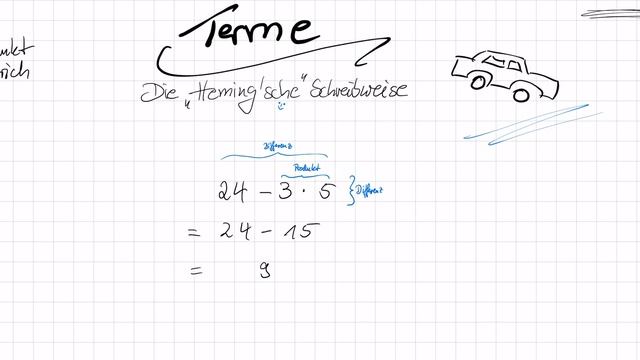 Terme
Die „Heming'sche" Schreibweise
Differenz
Produkt
24 - 3 · 5 } Differenz
= 24 - 15
= 9